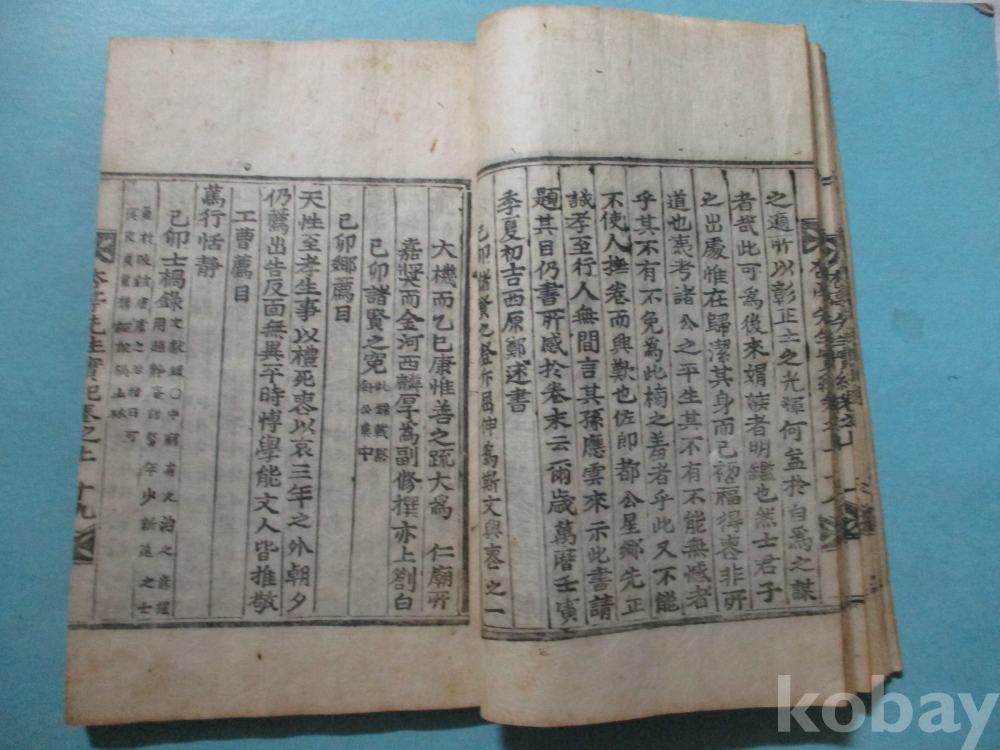 之遁所以彰正士之光輝何益於自爲之謀
者哉此可爲後來媢嫉者明鑑也然士君子
之出處惟在歸潔其身而已禍福得喪非所
道也夷考諸公之平生其不有不能無憾者
乎其不有不免爲此禍之羞者乎此又不能
不使人撫卷而興歎也佐郞都公星鄕先正
誠孝至行人無間言其孫應雲來示此書請
題其目仍書所感於卷末云爾歲萬曆壬寅
季夏初吉西原鄭逑書
己卯諸賢之登亦屈伸爲斯文興喪之一
大機而乙巳康惟善之疏大爲 仁廟所
嘉奬而金河西麟厚爲副修撰亦上劄白
己卯諸賢之寃
己卯鄕薦目
天性至孝生事以禮死喪以哀三年之外朝夕
仍薦出告反面無異平時博學能文人皆推敬
工曹薦目
篤行恬靜
己卯士禍錄
杏亭先生實記卷之上 十九
kobay